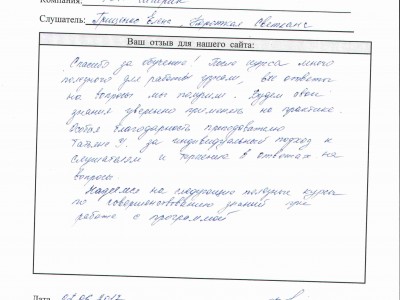 Компания:
Слушатель: Гриценко Елена Короткая Светлана
Ваш отзыв для нашего сайта:
Спасибо за обучение! После курса много
полезного для работы узнали, все ответы
на вопросы мы получили. Будем свои
знания уверенно применять на практике.
Особая благодарность преподавателю
Татьяне Ч. за индивидуальный подход к
слушателям и терпение в ответах на
вопросы.
Надеемся на следующие полезные курсы
по совершенствованию знаний при
работе с программой
Дата